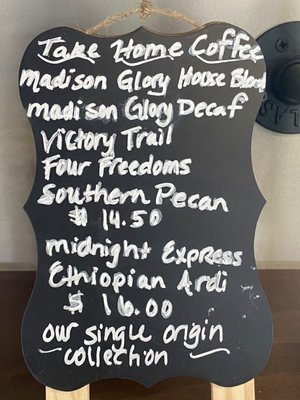 Take Home Coffee
Madison Glory House Blend
madison Glory Decaf
Victory Trail
Four Freedoms
Southern Pecan
$ 14.50
midnight Express
Ethiopian Ardi
$ 16.00
our single origin
collection